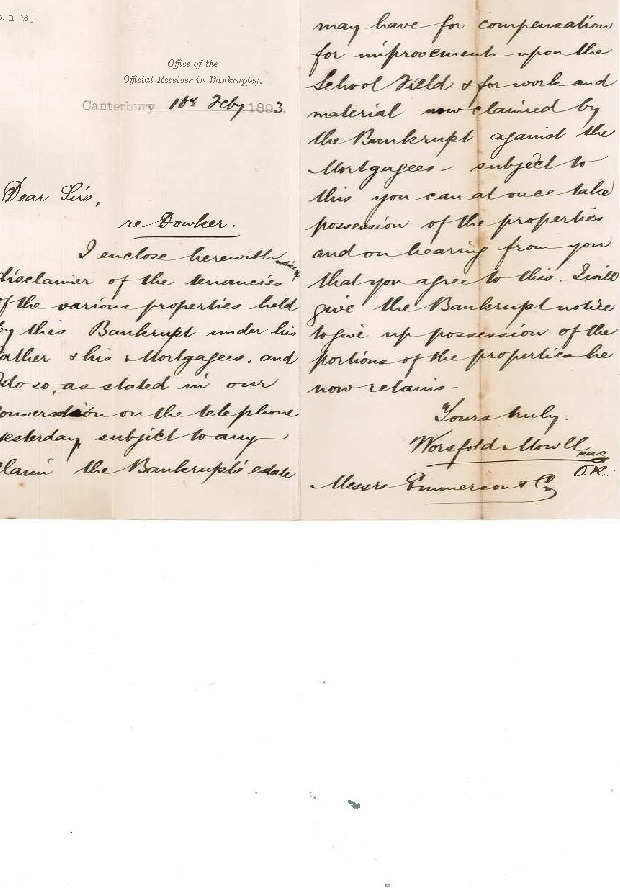 Office of the
Official Receiver in Bankruptcy.
Canterbury 10th Feby 1893
Dear Sirs,
re Dowker.
I enclose herewith
disclaimer of the tenancies
of the various properties held
by this Bankrupt under his
father & his Mortgagees, and
I do so, as stated in our
conversation on the telephone
yesterday, subject to any
claim the Bankrupt's estate
may have for compensation
for improvements upon the
School Field & for work and
material now claimed by
the Bankrupt against the
Mortgagees - subject to
this you can at once take
possession of the properties
and on hearing from you
that you agree to this. I will
give the Bankrupt notice
to give up possession of the
portions of the properties he
now retains -
Yours truly.
Worsfold Mowll
O.R.
Messrs Emmerson & Co